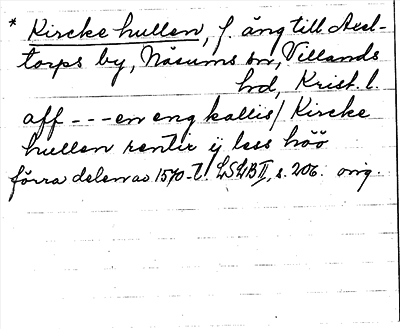 * Kircke hullen, f. äng till Axel-
torps by, Näsums sn, Villands
hd, Krist. l.
aff - - - en eng kallis / Kircke
hullen rentir ij less höö
förra delen av 1570-t. LSLB II, s. 206. orig.